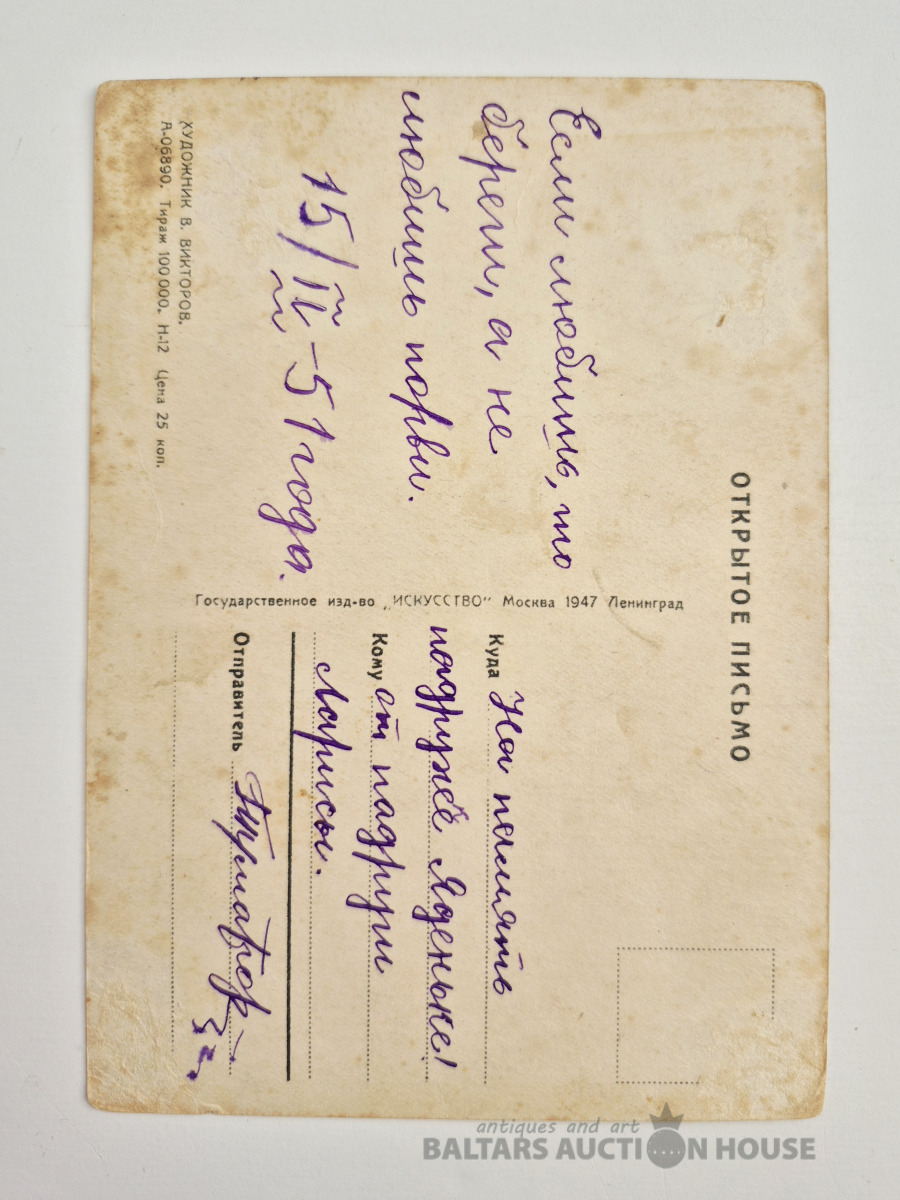 ОТКРЫТОЕ ПИСЬМО
Если любишь, то
береги, а не
любишь порви.
15/II-51 года.
ХУДОЖНИК В. ВИКТОРОВ.
А-06890. Тираж 100 000. Н-12 Цена 25 коп.
Государственное изд-во „ИСКУССТВО" Москва 1947 Ленинград
Куда На память
падруже Яденьке!
Кому от падруги
Ларисы.
Отправитель
antiques and art
BALTARS AUCTION HOUSE